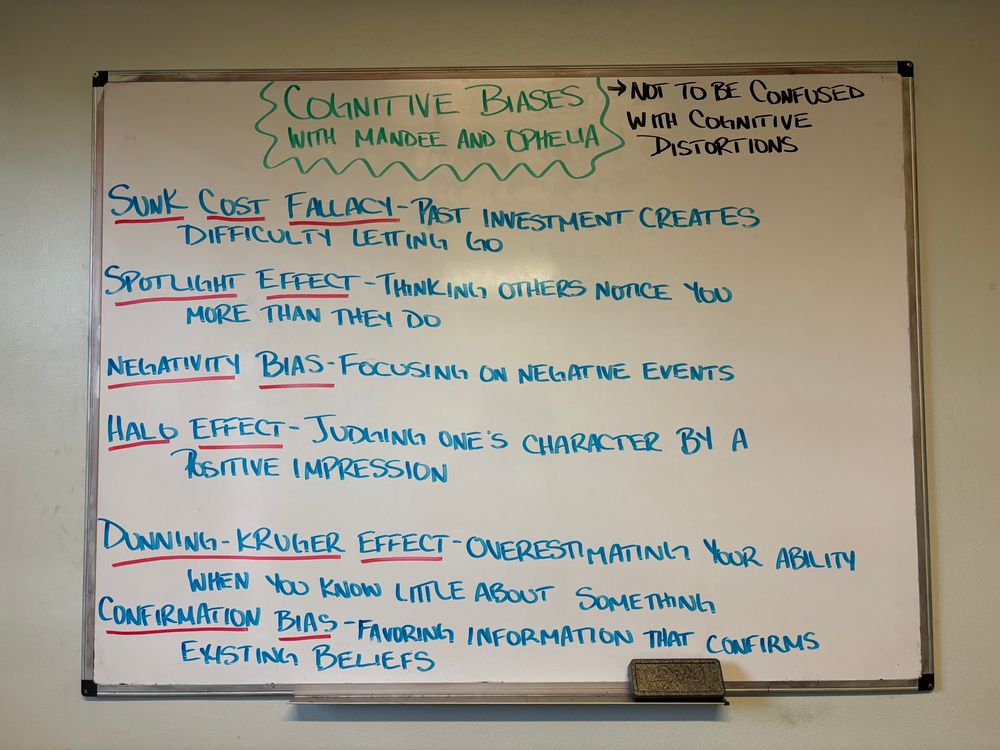 COGNITIVE BIASES
WITH MANDEE AND OPHELIA
→ NOT TO BE CONFUSED
WITH COGNITIVE
DISTORTIONS
SUNK COST FALLACY - PAST INVESTMENT CREATES
DIFFICULTY LETTING GO
SPOTLIGHT EFFECT - THINKING OTHERS NOTICE YOU
MORE THAN THEY DO
NEGATIVITY BIAS - FOCUSING ON NEGATIVE EVENTS
HALO EFFECT - JUDGING ONE'S CHARACTER BY A
POSITIVE IMPRESSION
DUNNING-KRUGER EFFECT - OVERESTIMATING YOUR ABILITY
WHEN YOU KNOW LITTLE ABOUT SOMETHING
CONFIRMATION BIAS - FAVORING INFORMATION THAT CONFIRMS
EXISTING BELIEFS